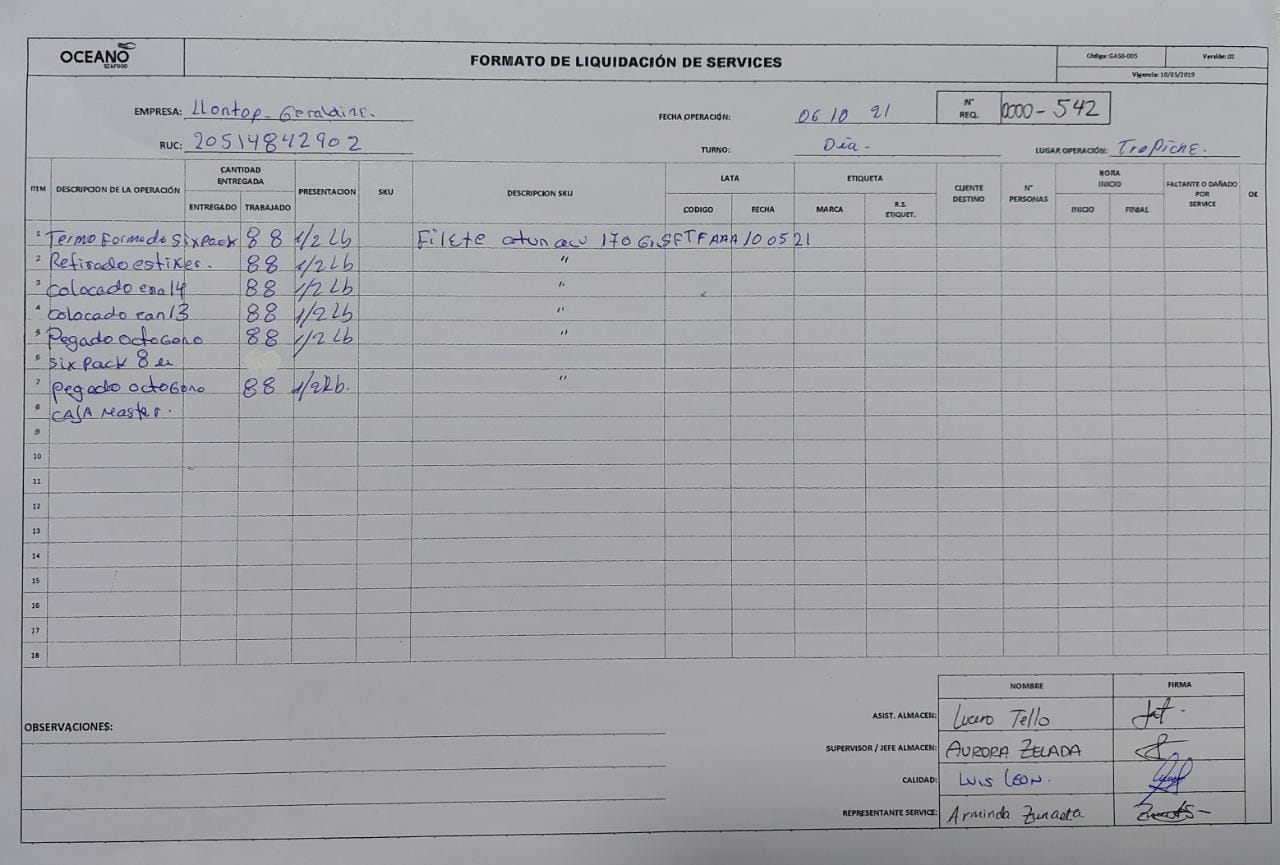 OCEANO
SEAFOOD
FORMATO DE LIQUIDACIÓN DE SERVICES
Código: GASO-005
Versión: 02
Vigencia: 10/05/2019
EMPRESA: Llontop - Geraldine.
FECHA OPERACIÓN: 06 10 21
N° REQ. 0000-542
RUC: 20514842902
TURNO: Día -
LUGAR OPERACIÓN: Trapiche.
ITEM
DESCRIPCION DE LA OPERACIÓN
CANTIDAD ENTREGADA
ENTREGADO
TRABAJADO
PRESENTACION
SKU
DESCRIPCION SKU
LATA
CODIGO
FECHA
ETIQUETA
MARCA
R.S. ETIQUET.
CLIENTE DESTINO
N° PERSONAS
HORA INICIO
INICIO
FINIAL
FALTANTE O DAÑADO POR SERVICE
OK
1 Termo Formado Sixpack 88 1/2 Lb Filete atun acv 170 Gr. SFTFAAA100521
2 Retirado estiker. 88 1/2 Lb "
3 colocado ena14 88 1/2 Lb "
4 colocado ean13 88 1/2 Lb "
5 Pegado octogono 88 1/2 Lb "
6 six pack 8 en
7 pegado octogono 88 1/2 Lb. "
8 CAJA Master.
9
10
11
12
13
14
15
16
17
18
OBSERVACIONES:
NOMBRE
FIRMA
ASIST. ALMACEN: Lucero Tello
SUPERVISOR / JEFE ALMACEN: AURORA ZELADA
CALIDAD: LUIS LEON.
REPRESENTANTE SERVICE: Arminda Zunaeta